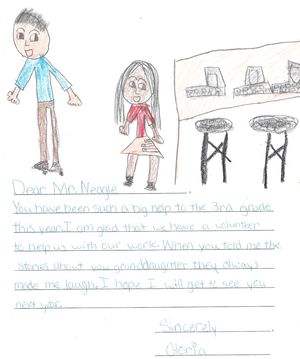 Dear Mr. Neagle
You have been such a big help to the 3rd grade
this year. I am glad that we have a volunteer
to help us with our work. When you told me the
stories about you granddaughter they always
made me laugh. I hope I will get to see you
next year.
Sincerely
Gloria